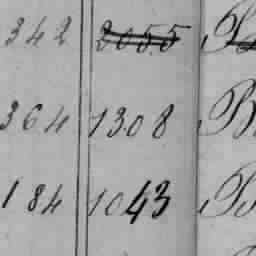 342 2055
364 1308
184 1043